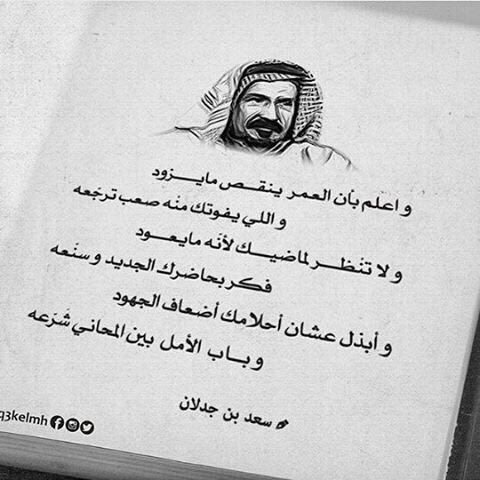 و اعلم بأن العمر ينقص مايزود
و اللي يفوتك منّه صعب ترجّعه
و لا تنظر لماضيك لأنّه مايعود
فكر بحاضرك الجديد و سنّعه
و أبذل عشان أحلامك أضعاف الجهود
و باب الأمل بين المحاني شرّعه
سعد بن جدلان
q3kelmh